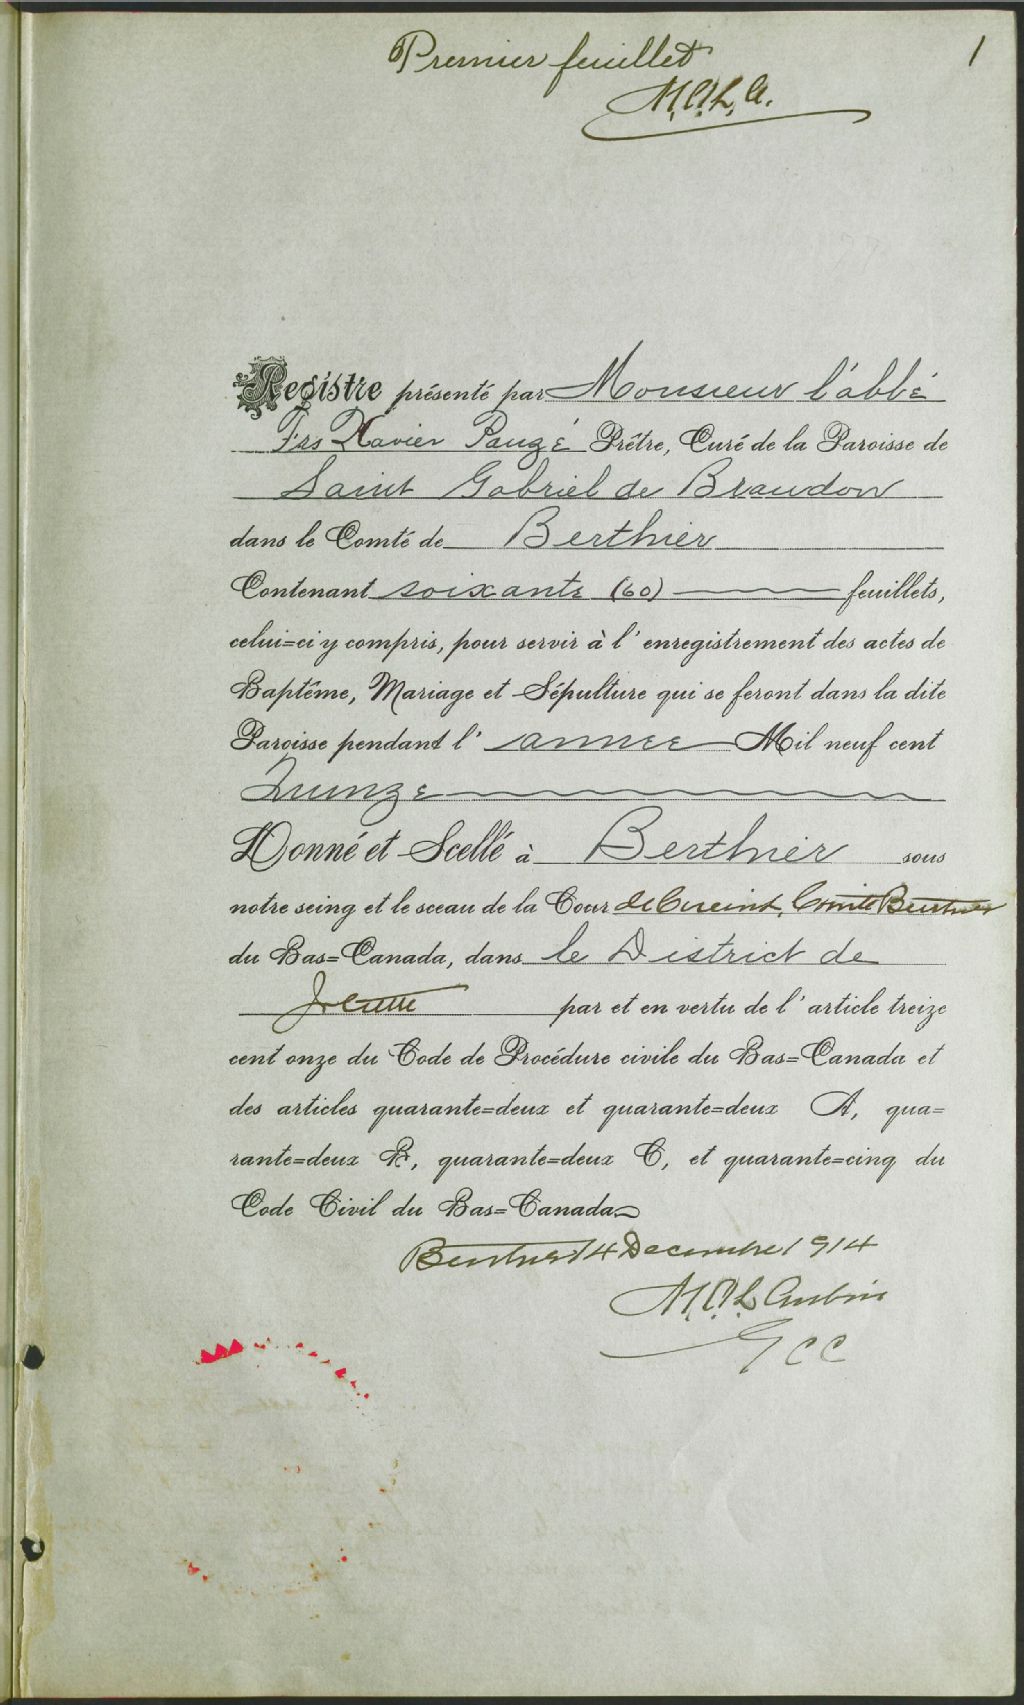 Premier feuillet 1
M.A.L.A.
Registre présenté par Monsieur l'abbé
Frs Xavier Pauzé Prêtre, Curé de la Paroisse de
Saint Gabriel de Brandon
dans le Comté de Berthier
Contenant soixante (60) feuillets,
celui=ci y compris, pour servir à l'enregistrement des actes de
Baptême, Mariage et Sépulture qui se feront dans la dite
Paroisse pendant l'année Mil neuf cent
Quinze
Donné et Scellé à Berthier sous
notre seing et le sceau de la Cour de Circuit, Comté Berthier
du Bas=Canada, dans le District de
Joliette par et en vertu de l'article treize
cent onze du Code de Procédure civile du Bas=Canada et
des articles quarante=deux et quarante=deux A, qua=
rante=deux B, quarante=deux C, et quarante=cinq du
Code Civil du Bas=Canada
Berthier 14 Decembre 1914
M.A.L. Aubin
GCC